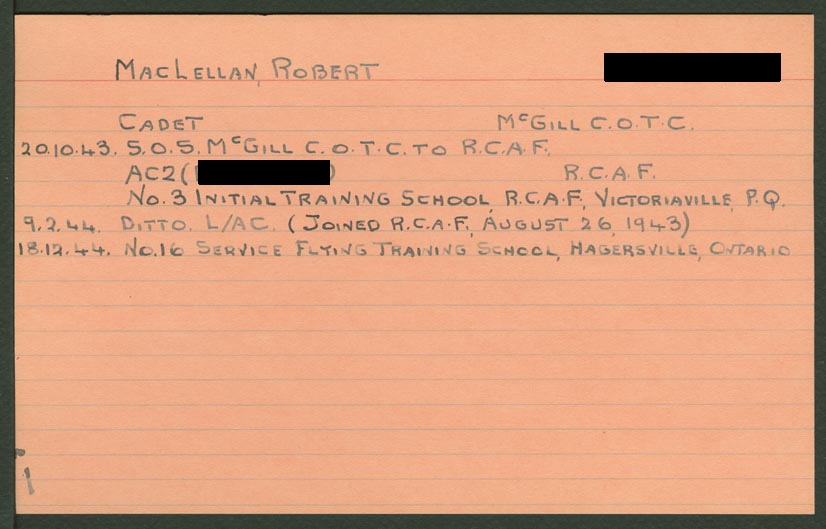 MacLellan, Robert
Cadet McGill C.O.T.C.
20.10.43. S.O.S. McGill C.O.T.C. to R.C.A.F.
AC2 ( ) R.C.A.F.
No. 3 Initial Training School, R.C.A.F., Victoriaville, P.Q.
9.2.44. Ditto. L/AC. (Joined R.C.A.F., August 26, 1943)
18.12.44. No. 16 Service Flying Training School, Hagersville, Ontario